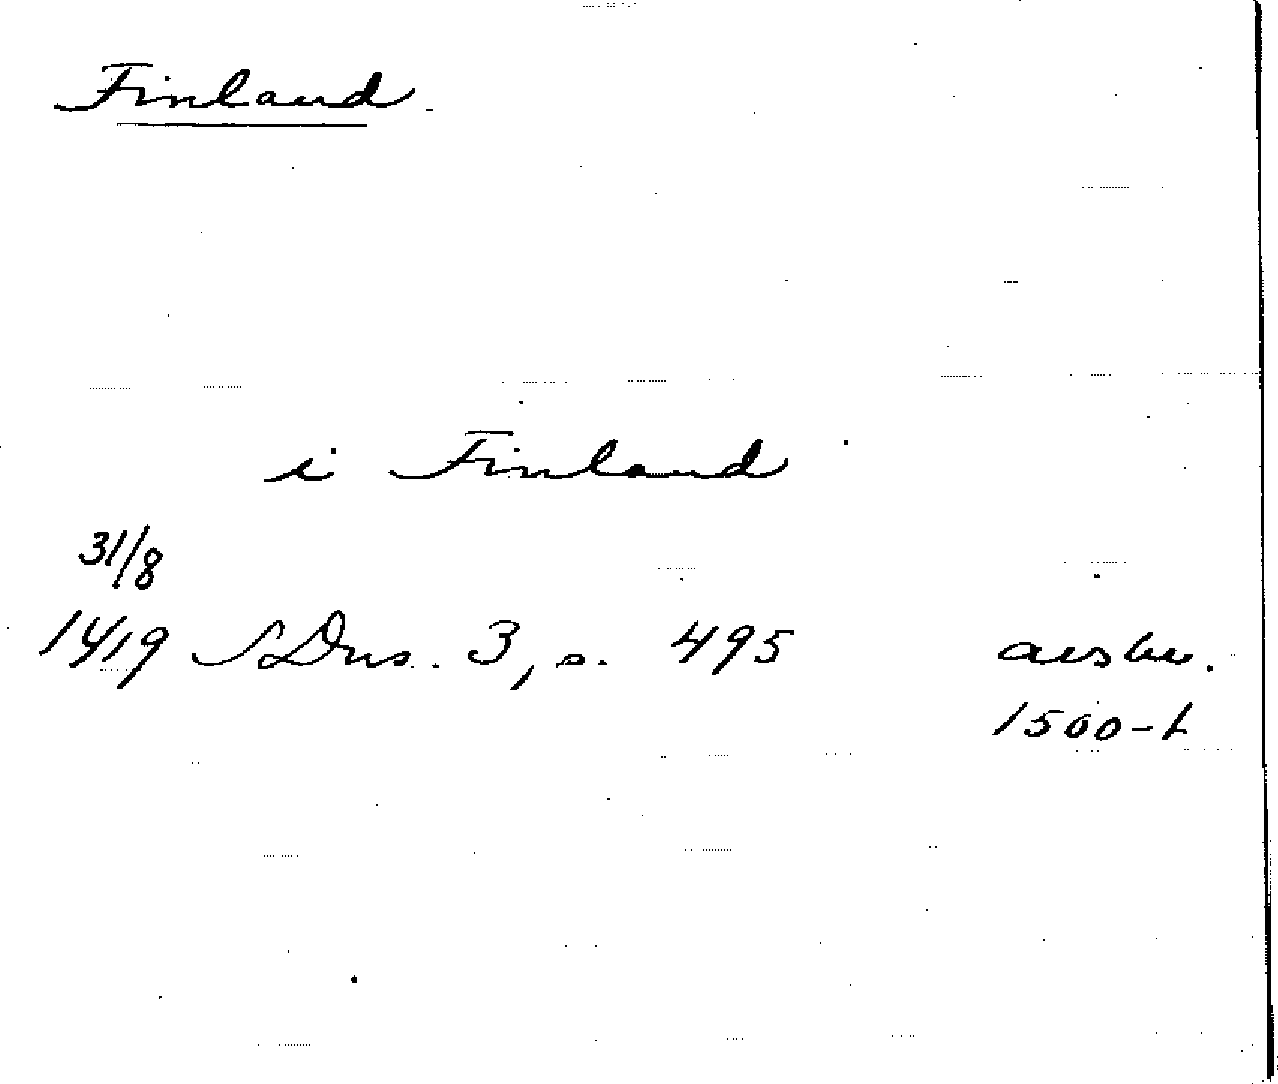 Finland
i Finland
31/8
1419 SDns. 3, s. 495 avskr.
1500-t